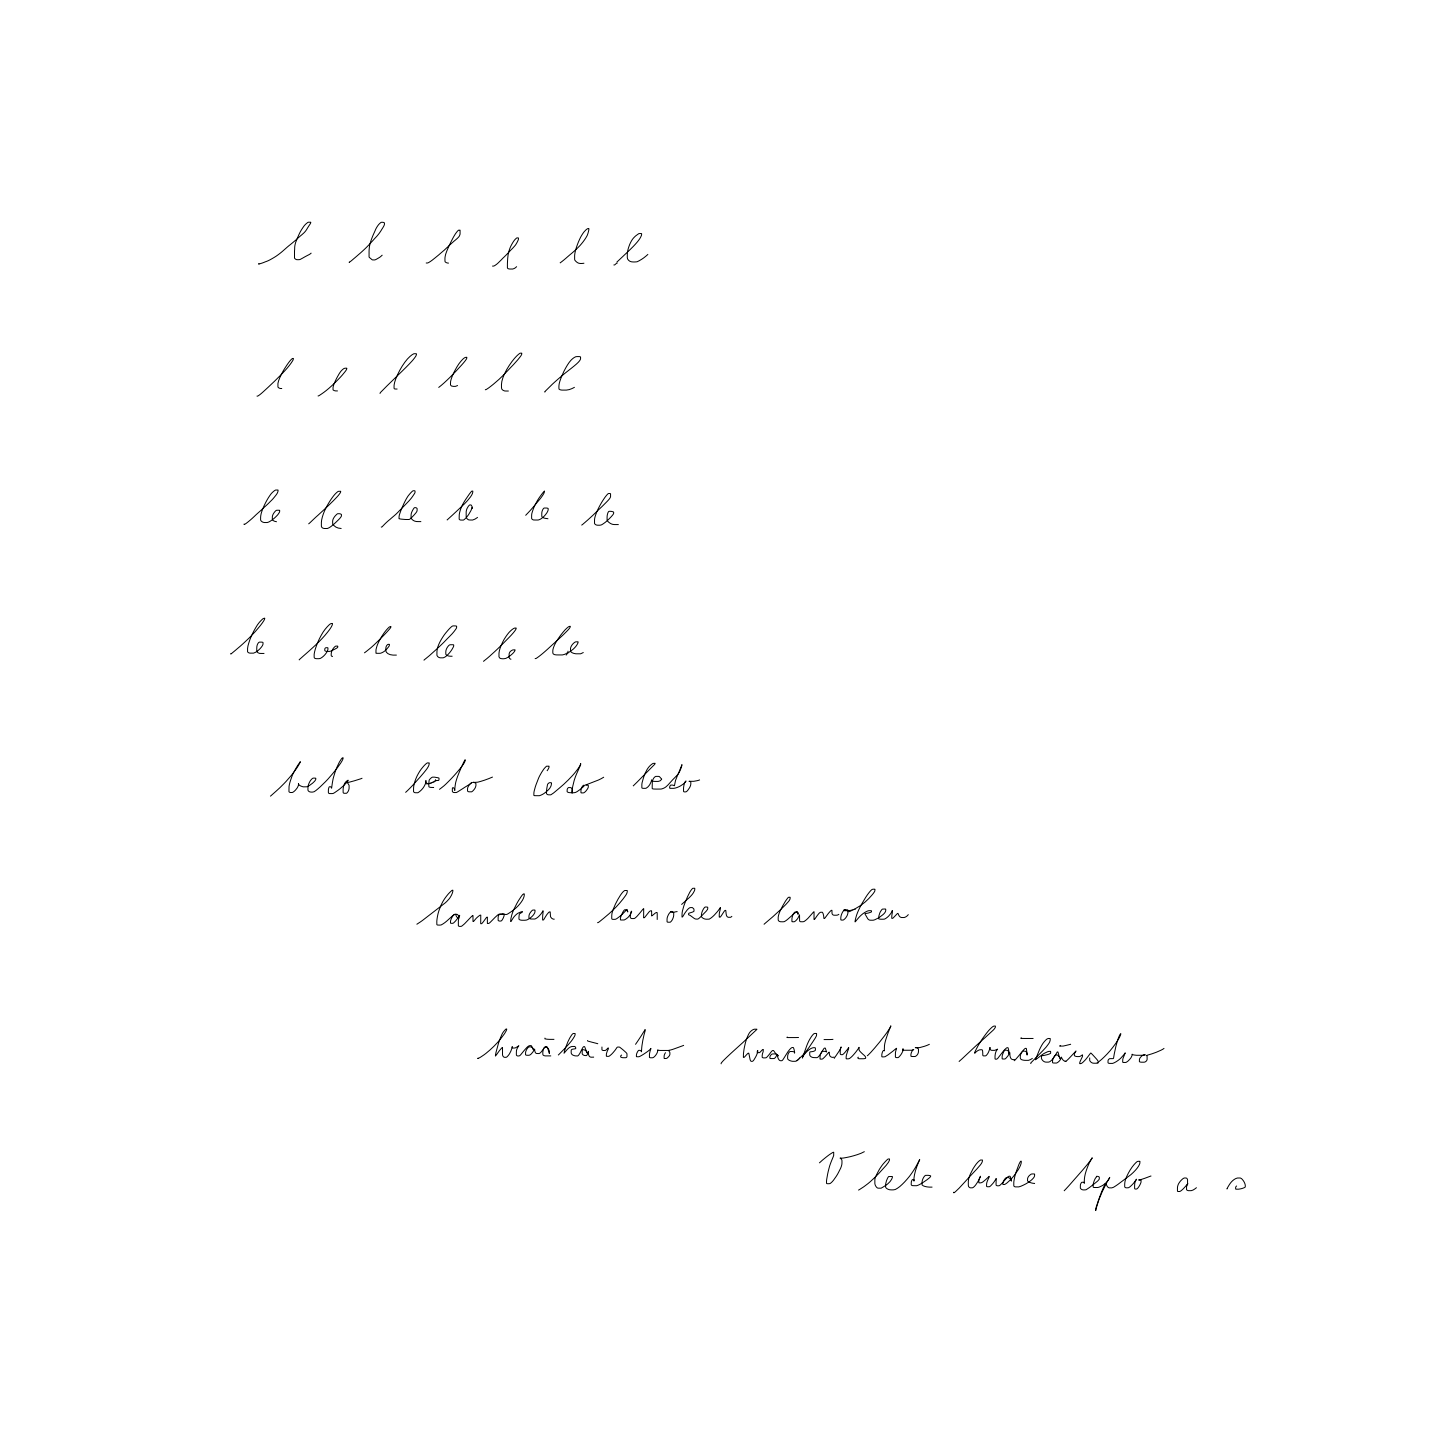 l l l l l l
l l l l l l
le le le le le le
le be le le le le
leto leto leto leto
lamoken lamoken lamoken
hračkárstvo hračkárstvo hračkárstvo
V lete bude teplo a s